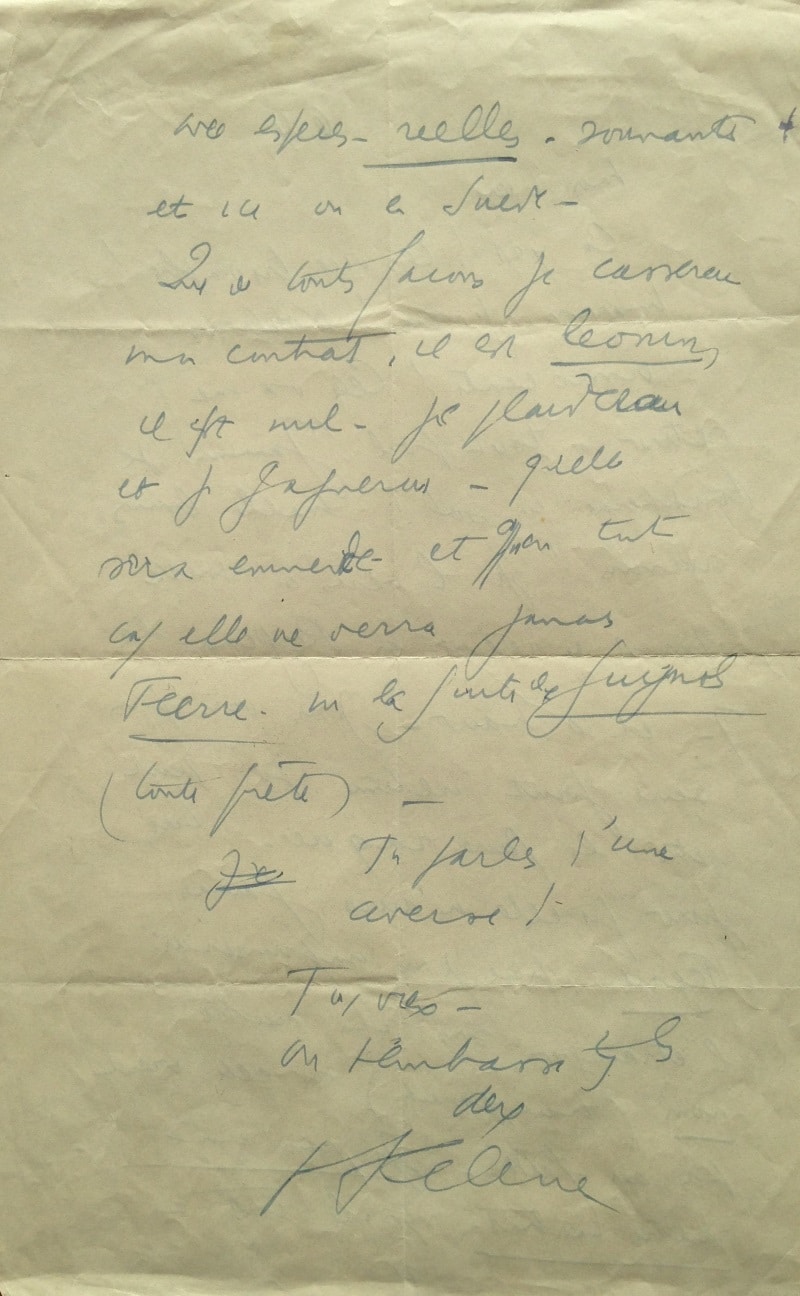 avec espèces - réelles - sonnantes +
et ici ou en Suède -
Que de toutes façons je casserai
mon contrat, il est léonin,
il est nul - je plaiderai
et je gagnerai - qu'elle
sera emmerdée et qu'en tout
cas elle ne verra jamais
Féerie. ni la suite de Guignols
(toute prête) -
Je Tu parles d'une
averse !
Tu vois -
on t'embrasse ts les
deux